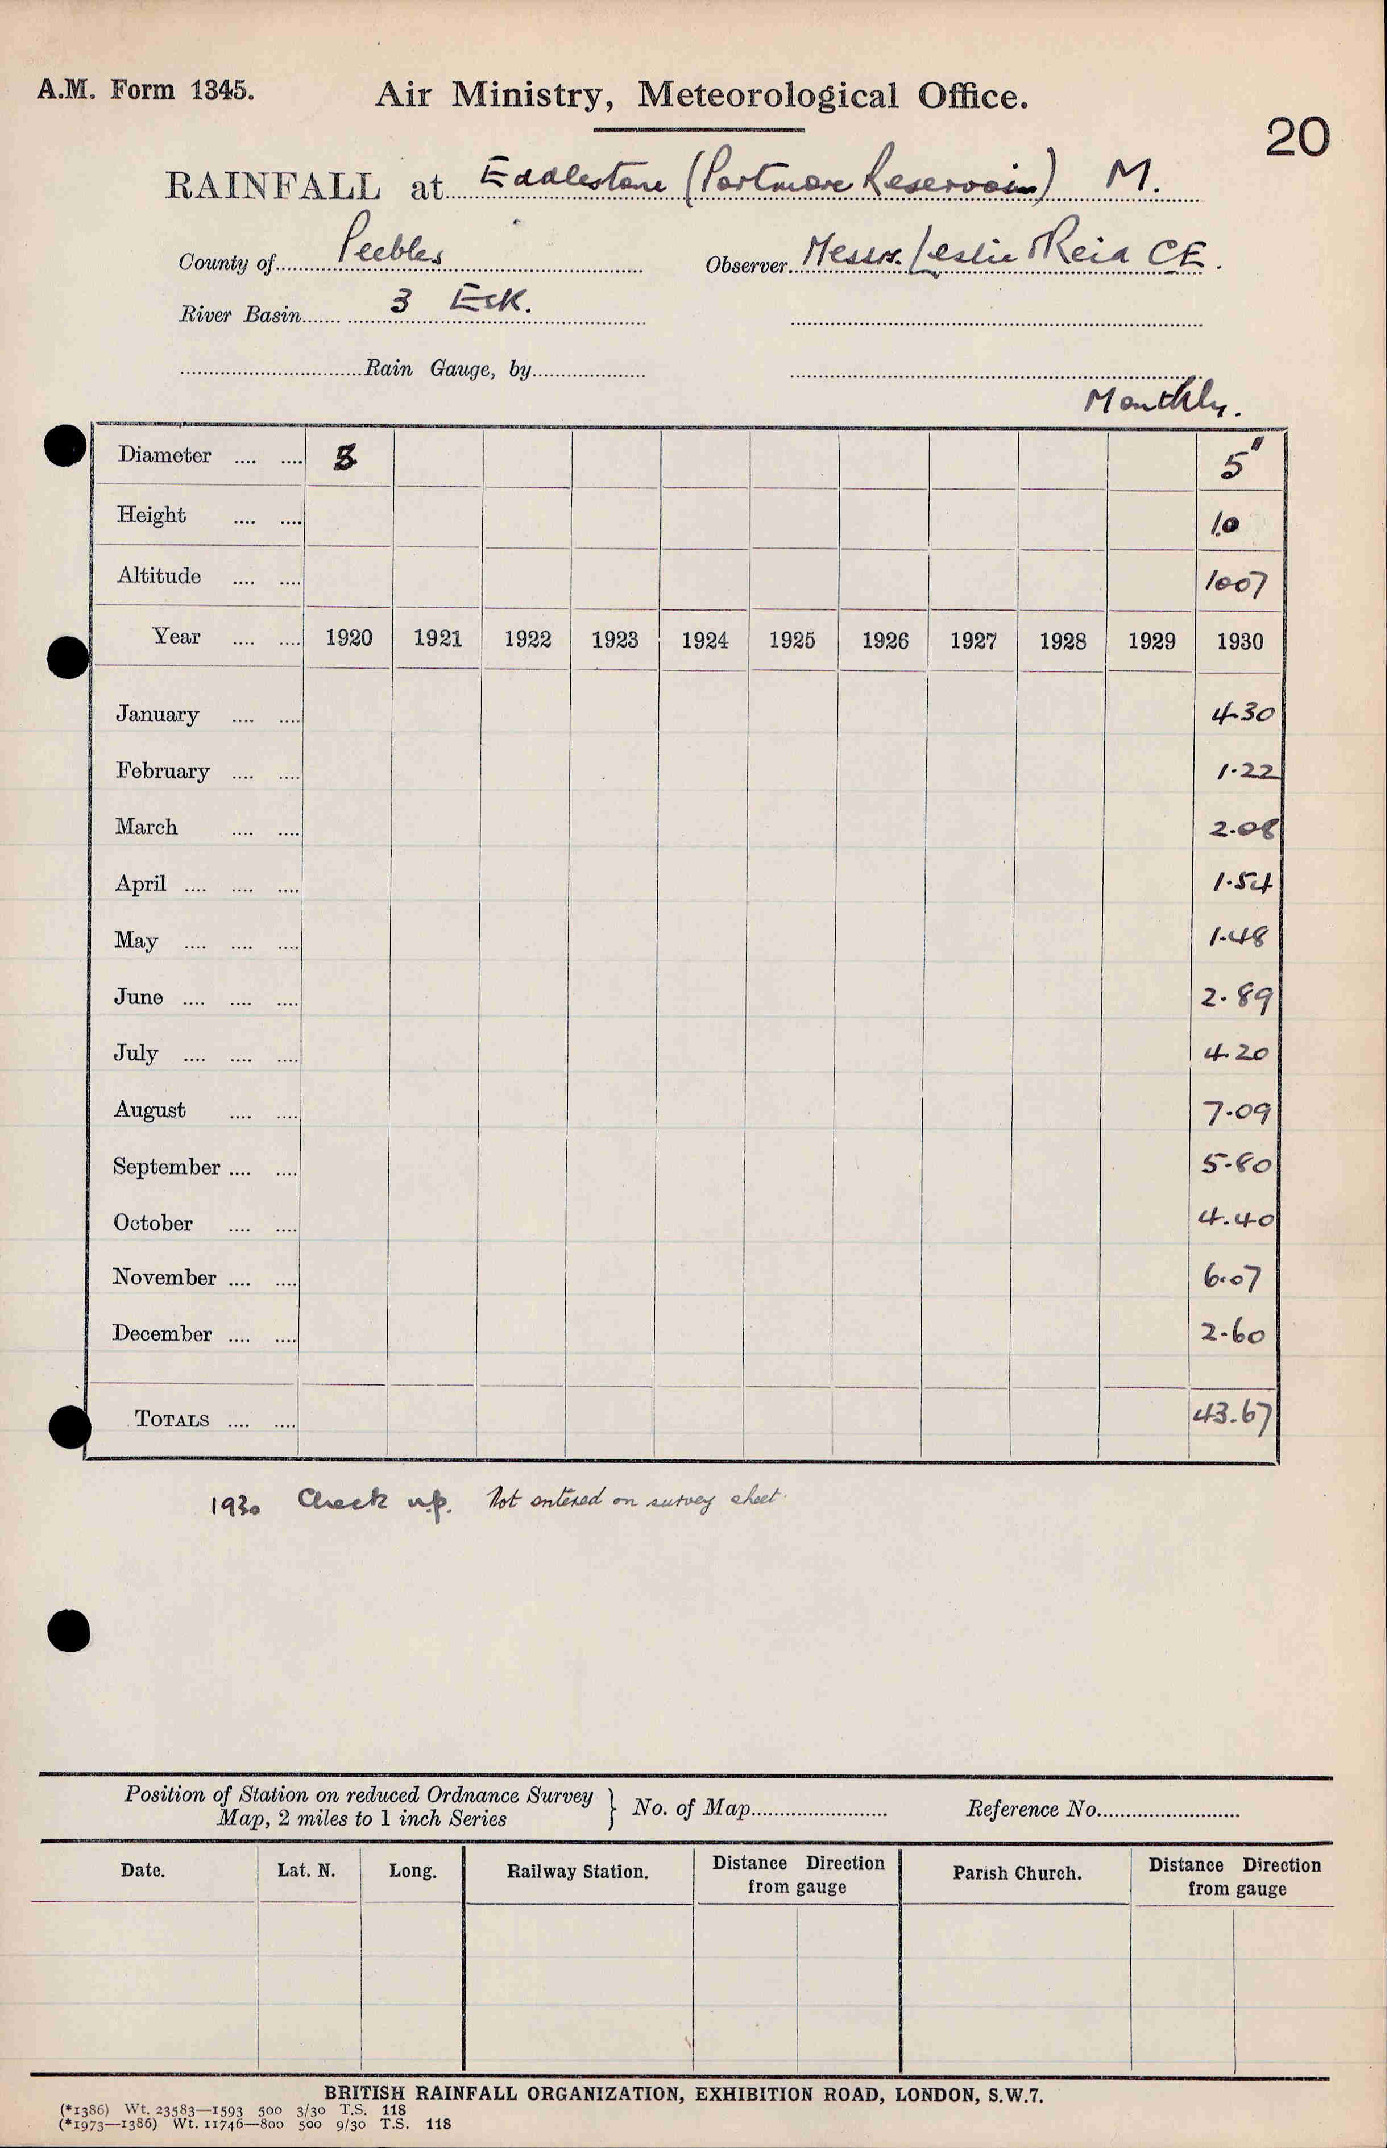 A.M. Form 1345.
Air Ministry, Meteorological Office.
20
RAINFALL at Eddlestone (Portmore Reservoir) M.
County of Peebles
Observer Messrs. Leslie & Reid CE.
River Basin 3 Esk.
Rain Gauge, by
Monthly.
Diameter .... .... 5"
Height .... .... 1.0
Altitude .... .... 1007
Year .... .... 1920 1921 1922 1923 1924 1925 1926 1927 1928 1929 1930
January .... .... 4.30
February .... .... 1.22
March .... .... 2.08
April .... .... .... 1.54
May .... .... .... 1.48
June .... .... .... 2.89
July .... .... .... 4.20
August .... .... 7.09
September .... .... 5.80
October .... .... 4.40
November .... .... 6.07
December .... .... 2.60
TOTALS .... .... 43.67
1930 Check up. Not entered on survey sheet.
Position of Station on reduced Ordnance Survey
Map, 2 miles to 1 inch Series } No. of Map Reference No.
Date. Lat. N. Long. Railway Station. Distance Direction from gauge Parish Church. Distance Direction from gauge
BRITISH RAINFALL ORGANIZATION, EXHIBITION ROAD, LONDON, S.W.7.
(*1386) Wt. 23583—1593 500 3/30 T.S. 118
(*1973—1386) Wt. 11746—800 500 9/30 T.S. 118